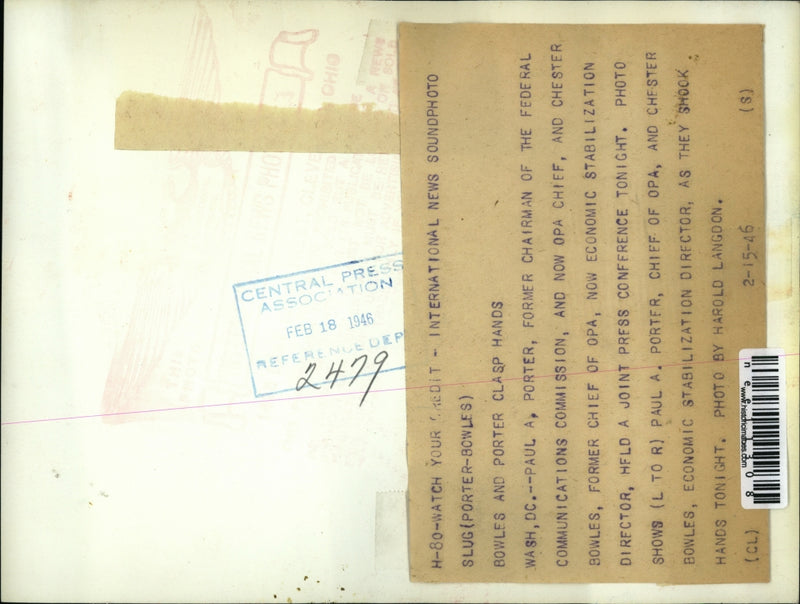 H-80-WATCH YOUR CREDIT - INTERNATIONAL NEWS SOUNDPHOTO
SLUG(PORTER-BOWLES)
BOWLES AND PORTER CLASP HANDS
WASH,DC.--PAUL A, PORTER, FORMER CHAIRMAN OF THE FEDERAL
COMMUNICATIONS COMMISSION, AND NOW OPA CHIEF, AND CHESTER
BOWLES, FORMER CHIEF OF OPA, NOW ECONOMIC STABILIZATION
DIRECTOR, HELD A JOINT PRESS CONFERENCE TONIGHT. PHOTO
SHOWS (L TO R) PAUL A. PORTER, CHIEF OF OPA, AND CHESTER
BOWLES, ECONOMIC STABILIZATION DIRECTOR, AS THEY SHOOK
HANDS TONIGHT. PHOTO BY HAROLD LANGDON.
(CL) 2-15-46 (S)
CENTRAL PRESS
ASSOCIATION
FEB 18 1946
REFERENCE DEP
2479
OHIO
A NEWS
OR SOLD
PHO
CLEVE
THIS